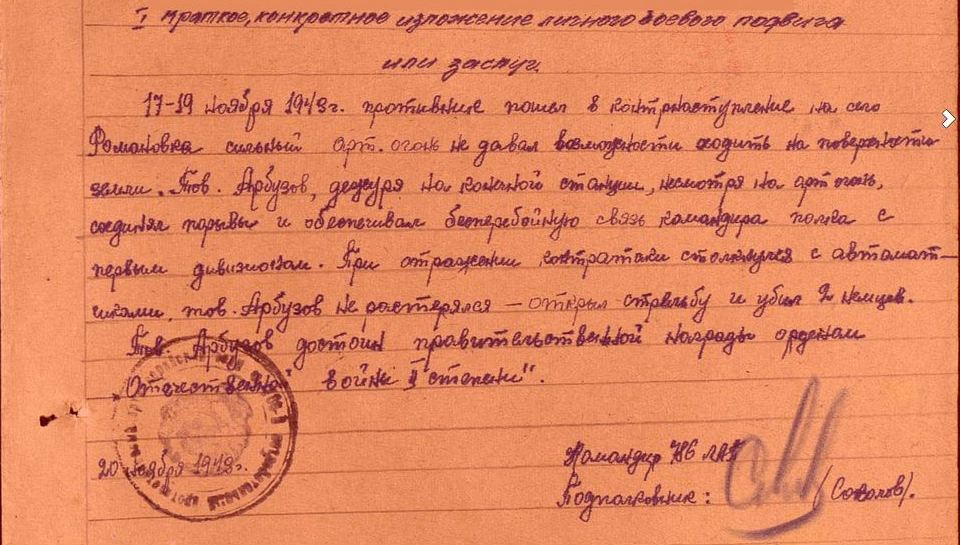 I краткое, конкретное изложение личного боевого подвига
или заслуг.
17-19 ноября 1943г. противник пошел в контрнаступление на село
Романовка сильный арт. огонь не давал возможности ходить на поверхности
земли. Тов. Арбузов, дежуря на конечной станции, несмотря на арт огонь,
соединял порывы и обеспечивал бесперебойную связь командира полка с
первым дивизионом. При отражении контратаки столкнулся с автомат-
чиками, тов. Арбузов не растерялся – открыл стрельбу и убил 2 немцев.
Тов. Арбузов достоин правительственной награды орденом
Отечественной войны II степени".
20 ноября 1943г.
Командир 786
Подполковник: (Соколов).